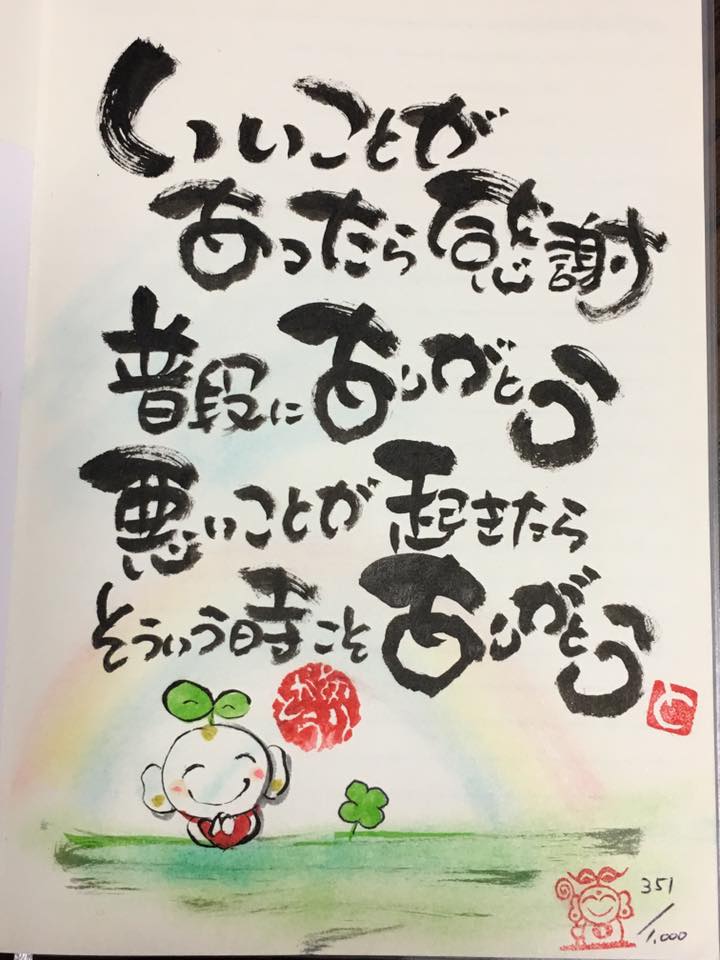 いいことが
あったら感謝
普段にありがとう
悪いことが起きたら
そういう時こそありがとう
351
/1,000